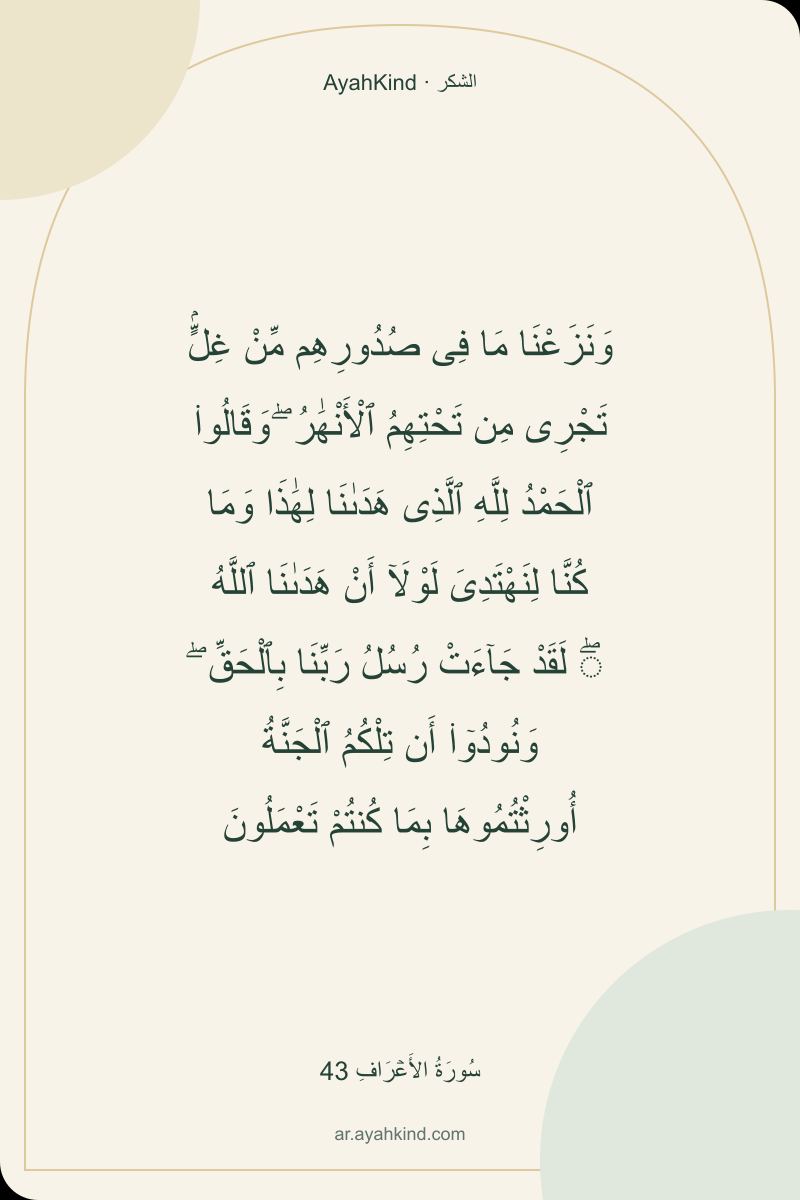 AyahKind · الشكر
وَنَزَعْنَا مَا فِى صُدُورِهِم مِّنْ غِلٍّۢ
تَجْرِى مِن تَحْتِهِمُ ٱلْأَنْهَٰرُ ۖ وَقَالُوا۟
ٱلْحَمْدُ لِلَّهِ ٱلَّذِى هَدَىٰنَا لِهَٰذَا وَمَا
كُنَّا لِنَهْتَدِىَ لَوْلَآ أَنْ هَدَىٰنَا ٱللَّهُ
ۖ لَقَدْ جَآءَتْ رُسُلُ رَبِّنَا بِٱلْحَقِّ ۖ
وَنُودُوٓا۟ أَن تِلْكُمُ ٱلْجَنَّةُ
أُورِثْتُمُوهَا بِمَا كُنتُمْ تَعْمَلُونَ
سُورَةُ الأَعۡرَافِ 43
ar.ayahkind.com